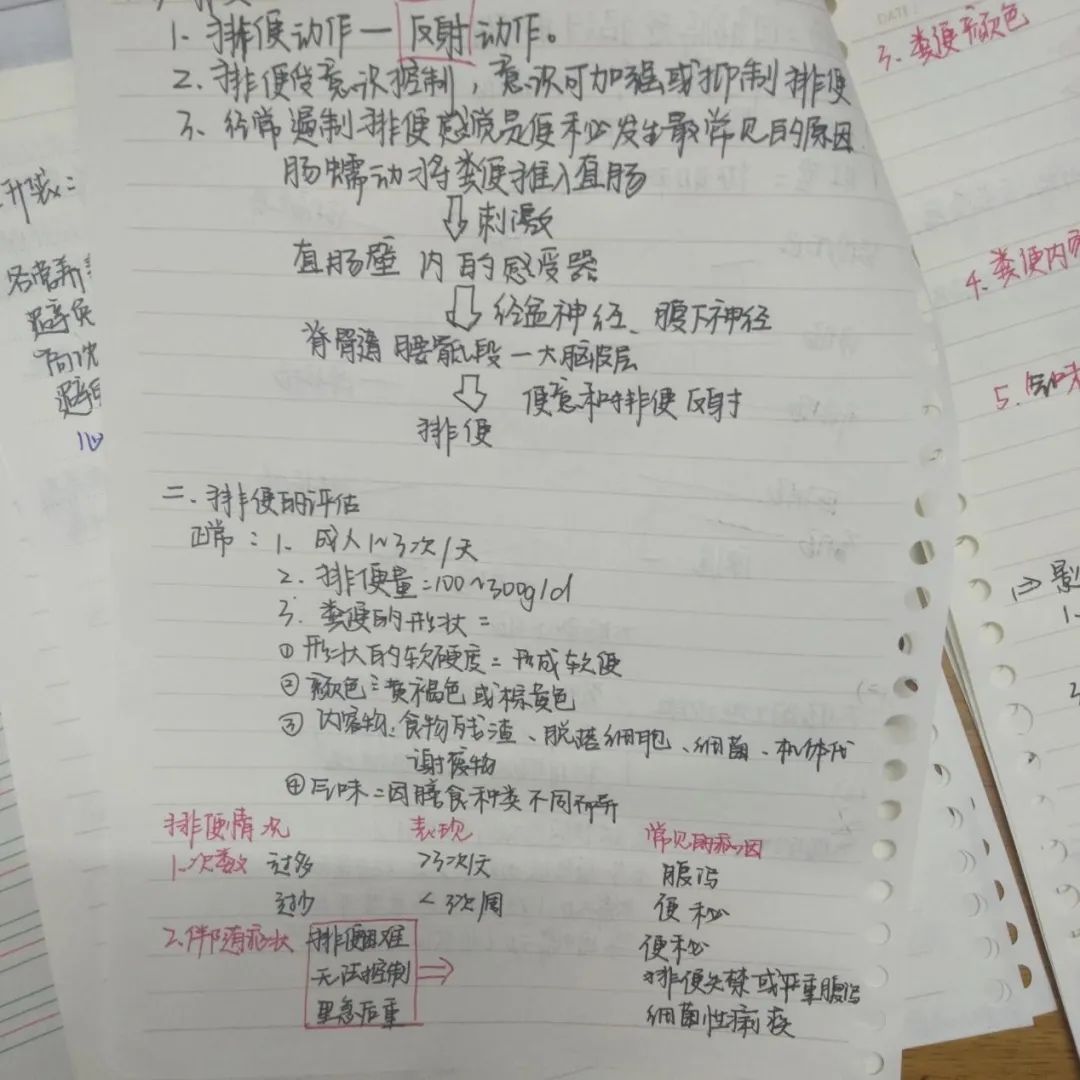 1. 排便动作一反射动作。
2. 排便受意识控制，意识可加强或抑制排便
3、经常遏制排便感觉是便秘发生最常见的原因
肠蠕动将粪便推入直肠
⇩ 刺激
直肠壁内的感受器
⇩ 经盆神经、腹下神经
脊髓 腰骶段－大脑皮层
⇩ 便意和排便反射
排便
二.排便的评估
正常：1. 成人1~3次/天
2. 排便量=100~300g/d
3. 粪便的形状=
① 形状的软硬度=形成软便
② 颜色：黄褐色或棕黄色
③ 内容物：食物残渣、脱落细胞、细菌、机体代
谢废物
④气味=因膳食种类不同而异
排便情况 表现 常见的病因
1.次数 过多 >3次/天 腹泻
过少 <3次/周 便秘
2.伴随症状 排便困难 便秘
无法控制 ⇒ 排便失禁或严重腹泻
里急后重 细菌性痢疾
3. 粪便颜色
4. 粪便内容
5. 气味